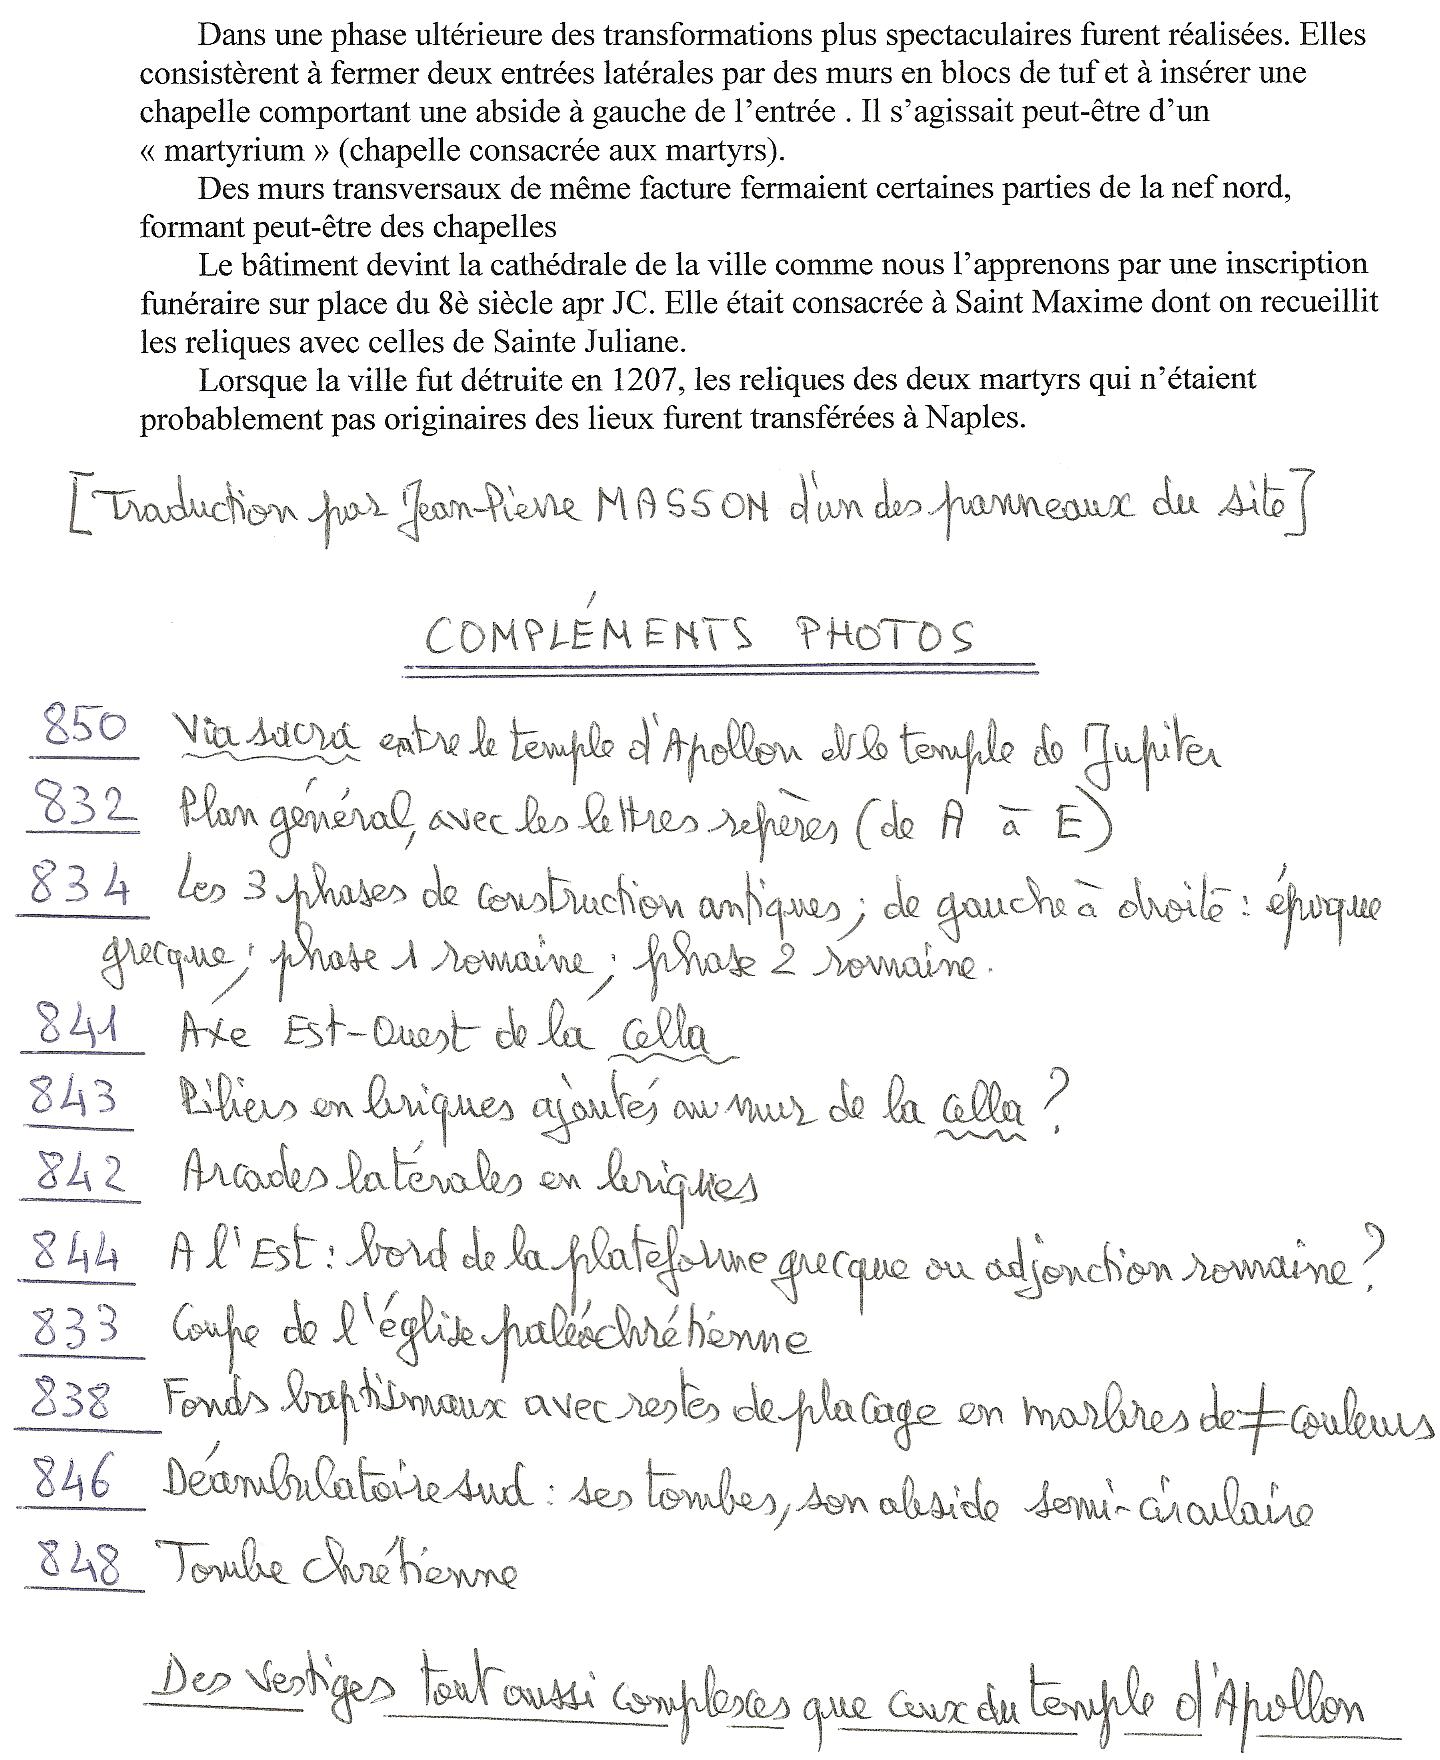 Dans une phase ultérieure des transformations plus spectaculaires furent réalisées. Elles
consistèrent à fermer deux entrées latérales par des murs en blocs de tuf et à insérer une
chapelle comportant une abside à gauche de l'entrée . Il s'agissait peut-être d'un
« martyrium » (chapelle consacrée aux martyrs).
Des murs transversaux de même facture fermaient certaines parties de la nef nord,
formant peut-être des chapelles
Le bâtiment devint la cathédrale de la ville comme nous l'apprenons par une inscription
funéraire sur place du 8è siècle apr JC. Elle était consacrée à Saint Maxime dont on recueillit
les reliques avec celles de Sainte Juliane.
Lorsque la ville fut détruite en 1207, les reliques des deux martyrs qui n'étaient
probablement pas originaires des lieux furent transférées à Naples.
[Traduction par Jean-Pierre MASSON d'un des panneaux du site]
COMPLÉMENTS PHOTOS
850 Via sacra entre le temple d'Apollon et le temple de Jupiter
832 Plan général, avec les lettres repères (de A à E)
834 Les 3 phases de construction antiques ; de gauche à droite : époque
grecque ; phase 1 romaine ; phase 2 romaine.
841 Axe Est-Ouest de la cella
843 Piliers en briques ajoutés au mur de la cella ?
842 Arcades latérales en briques
844 A l'Est : bord de la plateforme grecque ou adjonction romaine ?
833 Coupe de l'église paléochrétienne
838 Fonds baptismaux avec restes de placage en marbres de ≠ couleurs
846 Déambulatoire sud : ses tombes, son abside semi-circulaire
848 Tombe chrétienne
Des vestiges tout aussi complexes que ceux du temple d'Apollon